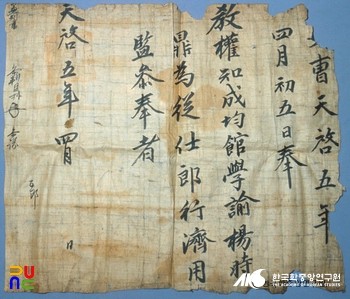 曹天啓五年
四月初五日奉
教權知成均館學諭楊時
鼎為從仕郎行濟用
監參奉者
天啓五年四月 日
한국학중앙연구원
THE ACADEMY OF KOREAN STUDIES